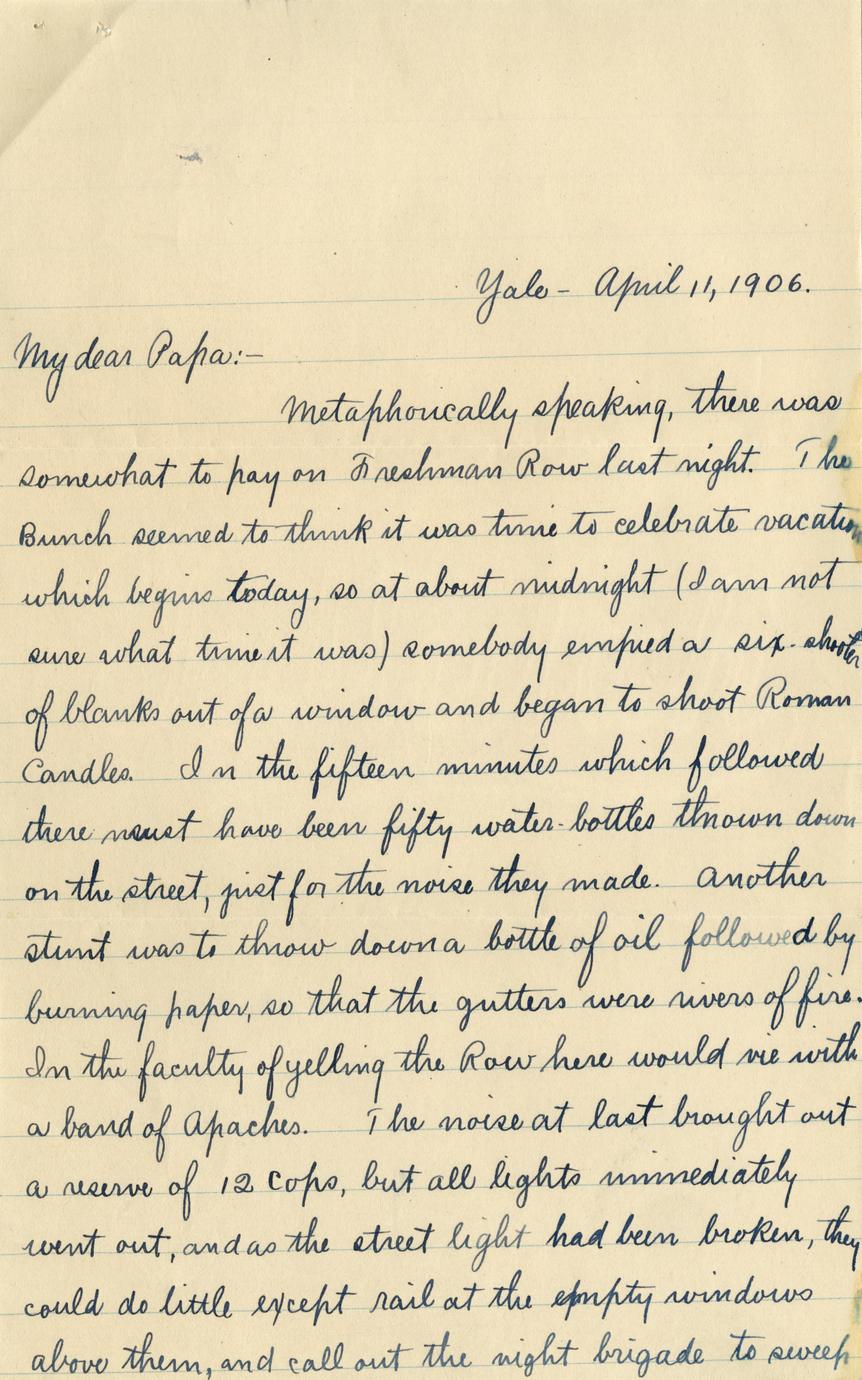 Yale - April 11, 1906.
My dear Papa:-
Metaphorically speaking, there was
somewhat to pay on Freshman Row last night. The
Bunch seemed to think it was time to celebrate vacation
which begins today, so at about midnight (I am not
sure what time it was) somebody empied a six-shooter
of blanks out of a window and began to shoot Roman
Candles. In the fifteen minutes which followed
there must have been fifty water-bottles thrown down
on the street, just for the noise they made. Another
stunt was to throw down a bottle of oil followed by
burning paper, so that the gutters were rivers of fire.
In the faculty of yelling the Row here would vie with
a band of Apaches. The noise at last brought out
a reserve of 12 cops, but all lights immediately
went out, and as the street light had been broken, they
could do little except rail at the empty windows
above them, and call out the night brigade to sweep